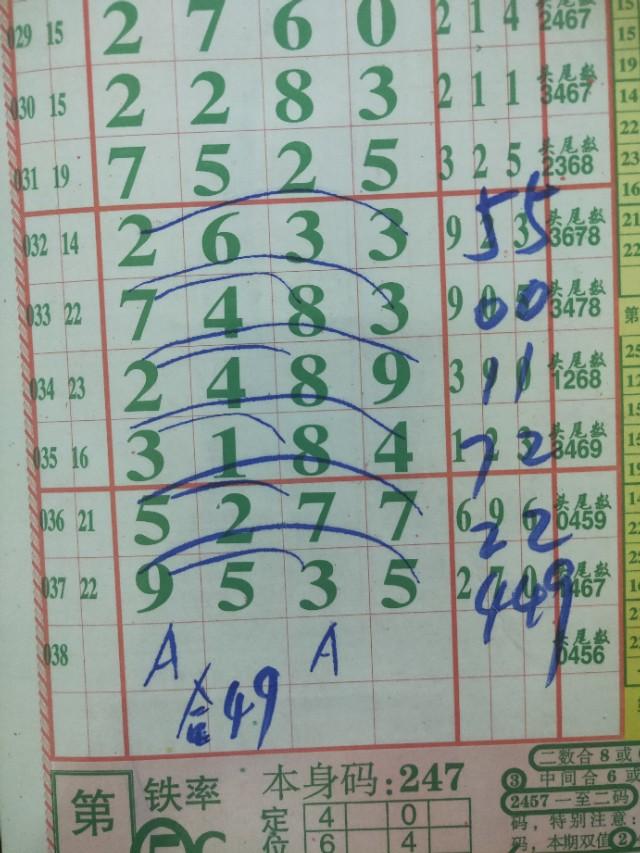 029 15 2 7 6 0 2 1 4 头尾数 2467
030 15 2 2 8 3 2 1 1 头尾数 3467
031 19 7 5 2 5 3 2 5 头尾数 2368
032 14 2 6 3 3 9 2 3 头尾数 3678
55
033 22 7 4 8 3 9 0 5 头尾数 3478
00
034 23 2 4 8 9 3 9 0 头尾数 1268
11
035 16 3 1 8 4 1 2 3 头尾数 3469
72
036 21 5 2 7 7 6 9 6 头尾数 0459
22
037 22 9 5 3 5 2 7 0 头尾数 467
449
038 头尾数 0456
A A
X
合49
第 铁率 本身码:247
定位 4 0
6 4
二数合8或
③中间合6或
2457一至二码
码，特别注意:
码，本期双值②